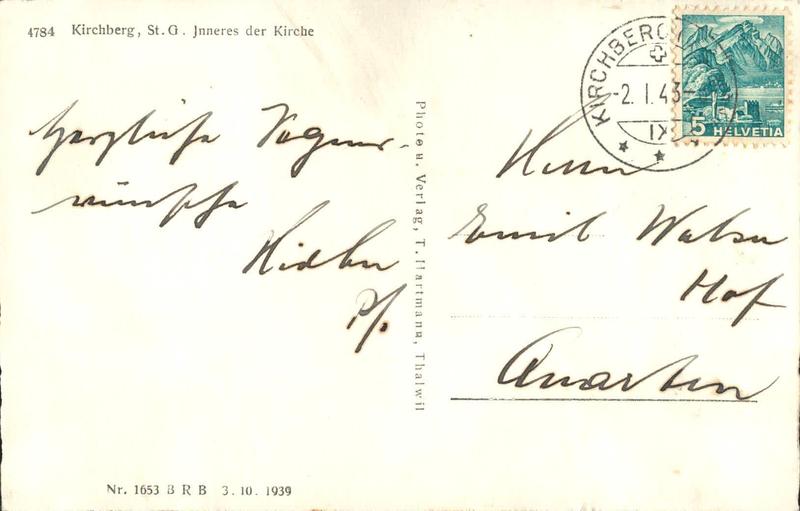 4784 Kirchberg, St. G. Jnneres der Kirche
KIRCHBERG
-2. I. 43-
IX
5 HELVETIA
Herzliche Segens-
wünsche
Hidber
Pf.
Photo u. Verlag, T. Hartmann, Thalwil
Herrn
Emil Walser
Hof
Quarten
Nr. 1653 B R B 3. 10. 1939